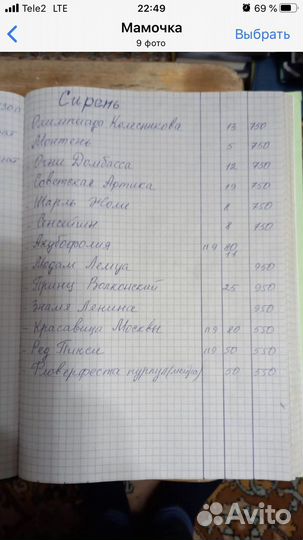 Tele2 LTE 22:49 69 %
Мамочка
9 фото
Выбрать
Сирень
Олимпиада Колесникова 13 750
Монтень 5 750
Огни Домбасса 12 750
Советская Артика 19 750
Шарль Жоли 8 750
Сенсейшн 8 750
- Акубофолия п9 80
Мадам Лемуа 950
- Принц Волконский 25 950
Знамя Ленина 950
- Красавица Москвы п9 80 550
- Ред Пикси п9 50 550
Фловерфеста пурпул 50 550
Avito